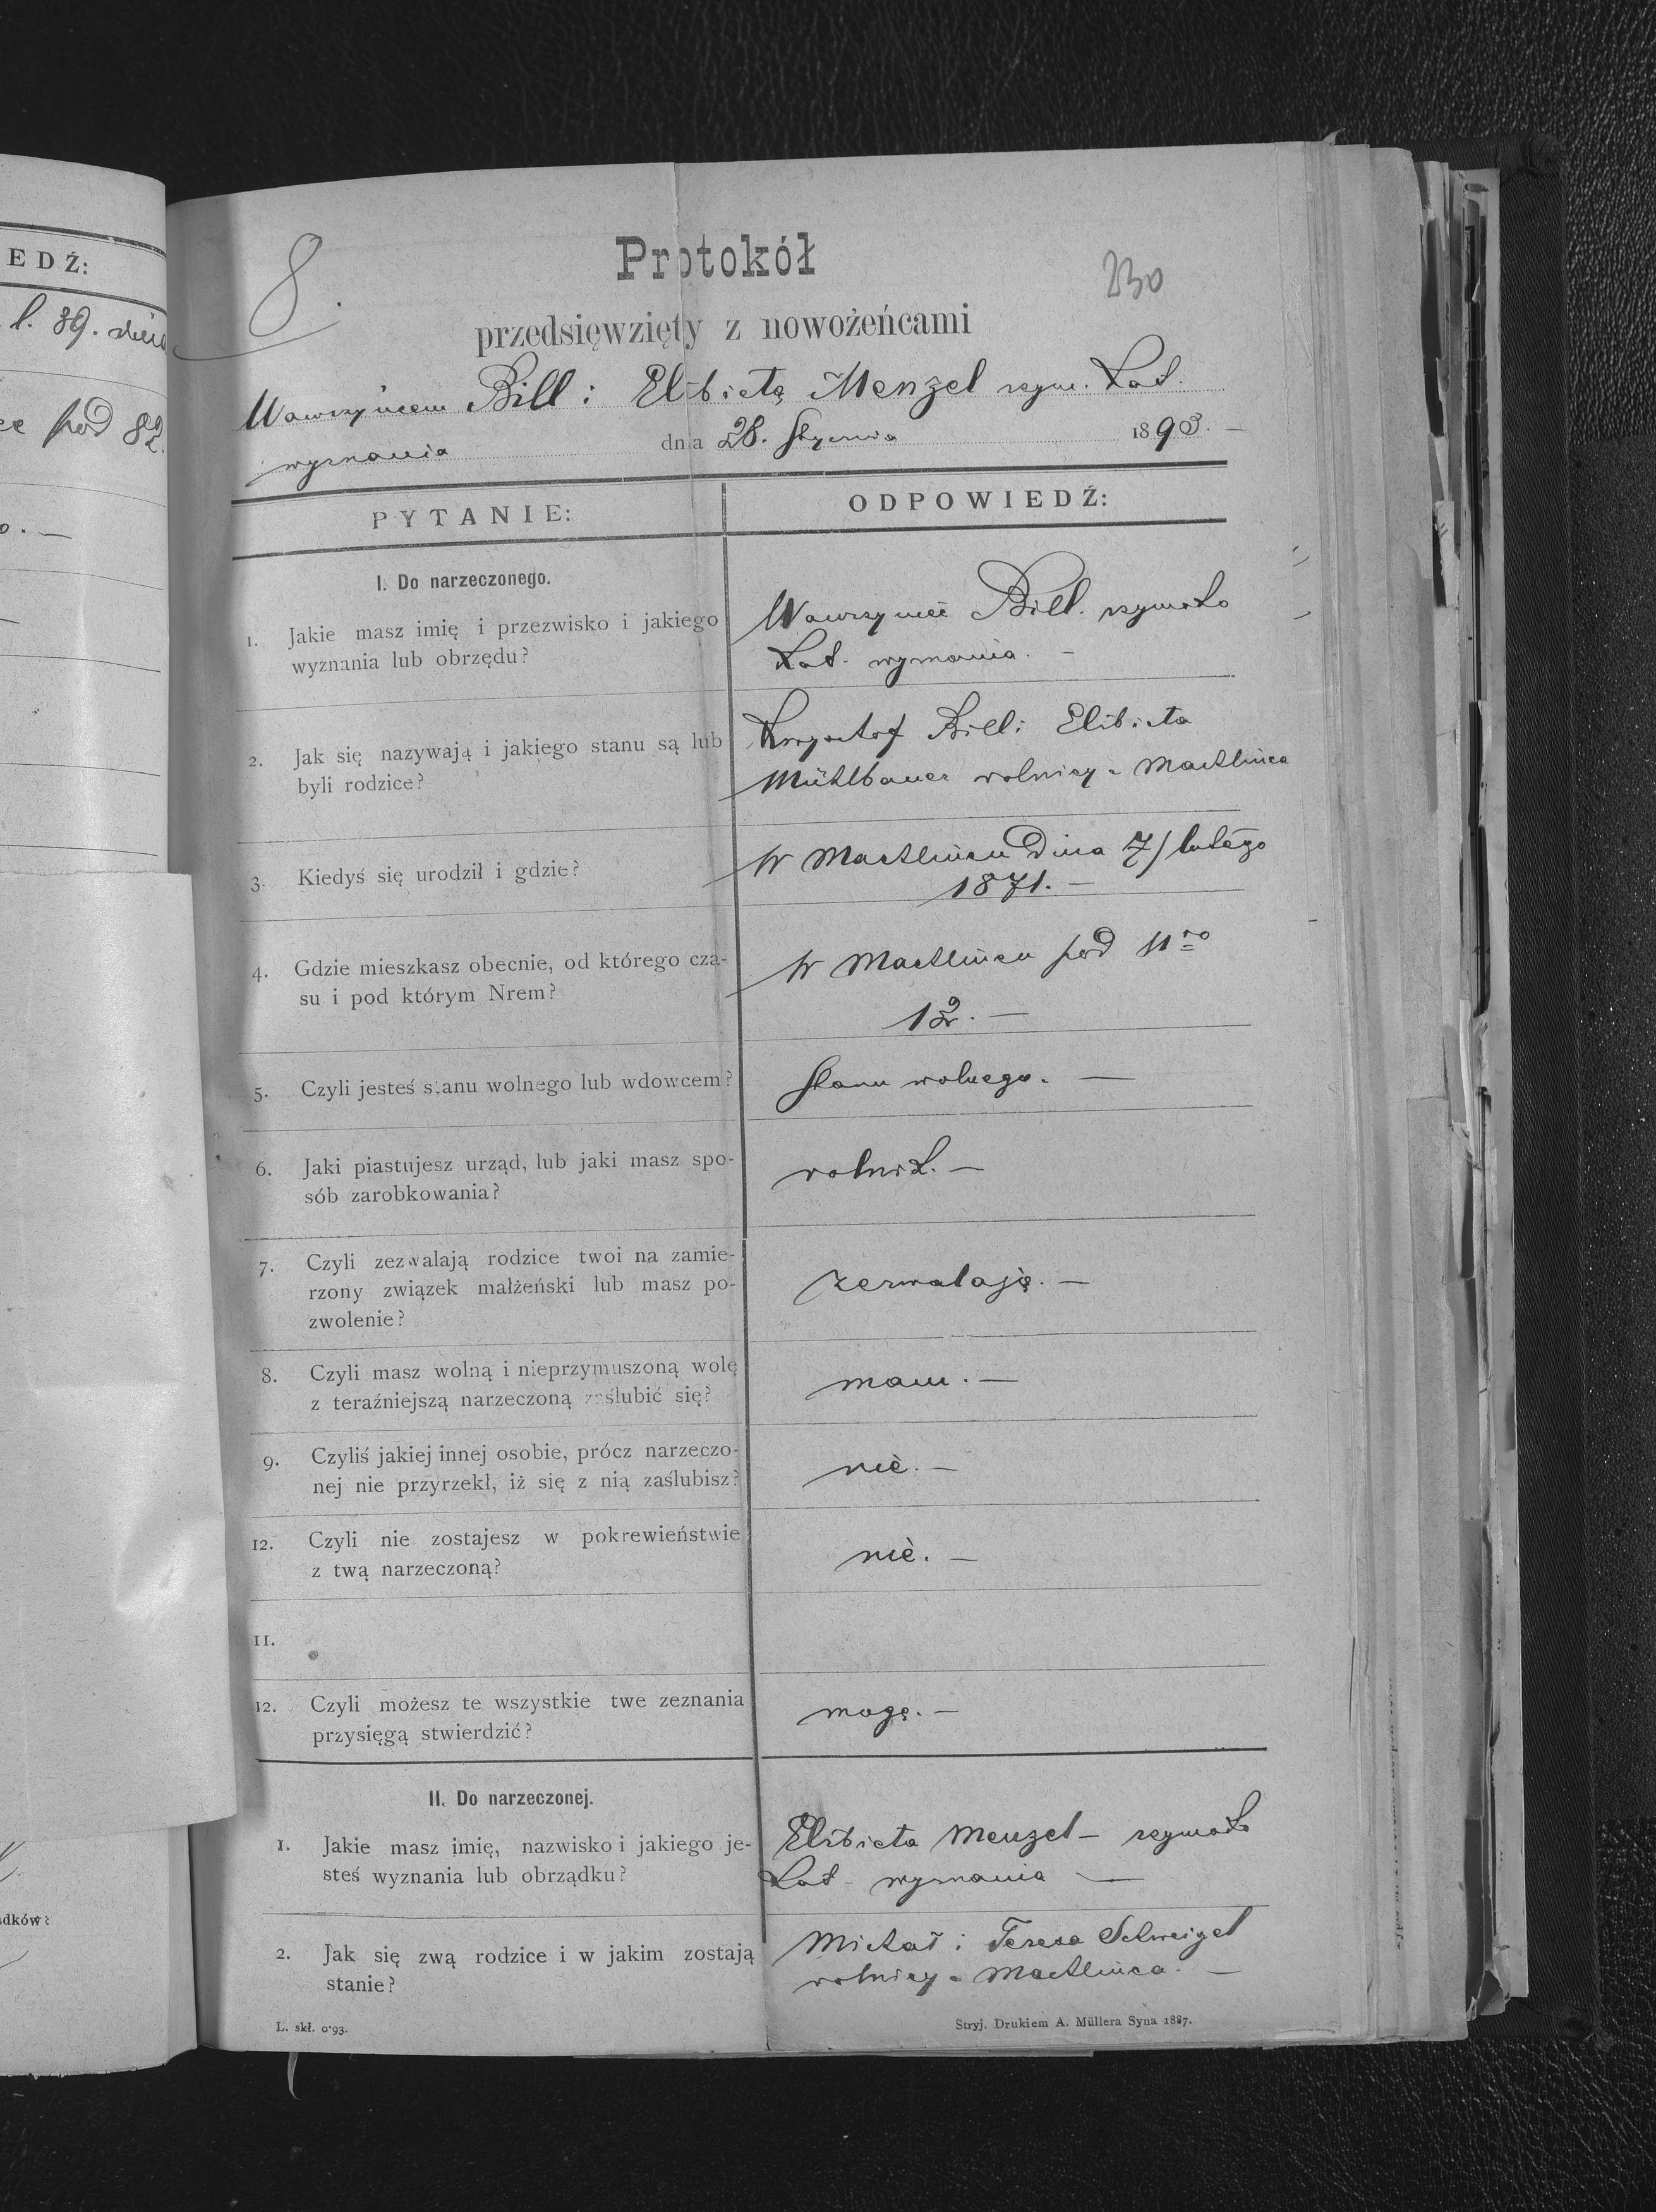 EDŹ:
l. 39.
pod 82.
8.
Protokół
230
przedsięwzięty z nowożeńcami
Wawrzyńcem Bill i Elżbietą Menzel rzym. kat.
wyznania dnia 28. Stycznia 1893. —
PYTANIE:
ODPOWIEDŹ:
I. Do narzeczonego.
1. Jakie masz imię i przezwisko i jakiego
wyznania lub obrzędu?
Wawrzyniec Bill. rzymsko
kat. wyznania. —
2. Jak się nazywają i jakiego stanu są lub
byli rodzice?
Krzysztof Bill i Elżbieta
Mühlbauer rolnicy z Machlińca
3. Kiedyś się urodził i gdzie?
w Machlińcu dnia 7/ lutego
1871. —
4. Gdzie mieszkasz obecnie, od którego cza-
su i pod którym Nrem?
w Machlińcu pod Nro
12. —
5. Czyli jesteś stanu wolnego lub wdowcem?
stanu wolnego. —
6. Jaki piastujesz urząd, lub jaki masz spo-
sób zarobkowania?
rolnik. —
7. Czyli zezwalają rodzice twoi na zamie-
rzony związek małżeński lub masz po-
zwolenie?
zezwalają. —
8. Czyli masz wolną i nieprzymuszoną wolę
z teraźniejszą narzeczoną zaślubić się?
mam. —
9. Czyliś jakiej innej osobie, prócz narzeczo-
nej nie przyrzekł, iż się z nią zaślubisz?
nie. —
12. Czyli nie zostajesz w pokrewieństwie
z twą narzeczoną?
nie. —
11.
12. Czyli możesz te wszystkie twe zeznania
przysięgą stwierdzić?
mogę. —
II. Do narzeczonej.
1. Jakie masz imię, nazwisko i jakiego je-
steś wyznania lub obrządku?
Elżbieta Menzel — rzymsko
kat. wyznania —
2. Jak się zwą rodzice i w jakim zostają
stanie?
Michał i Teresa Schweigel
rolnicy z Machlińca. —
L. skł. 0·93.
Stryj. Drukiem A. Müllera Syna 1887.
adków: